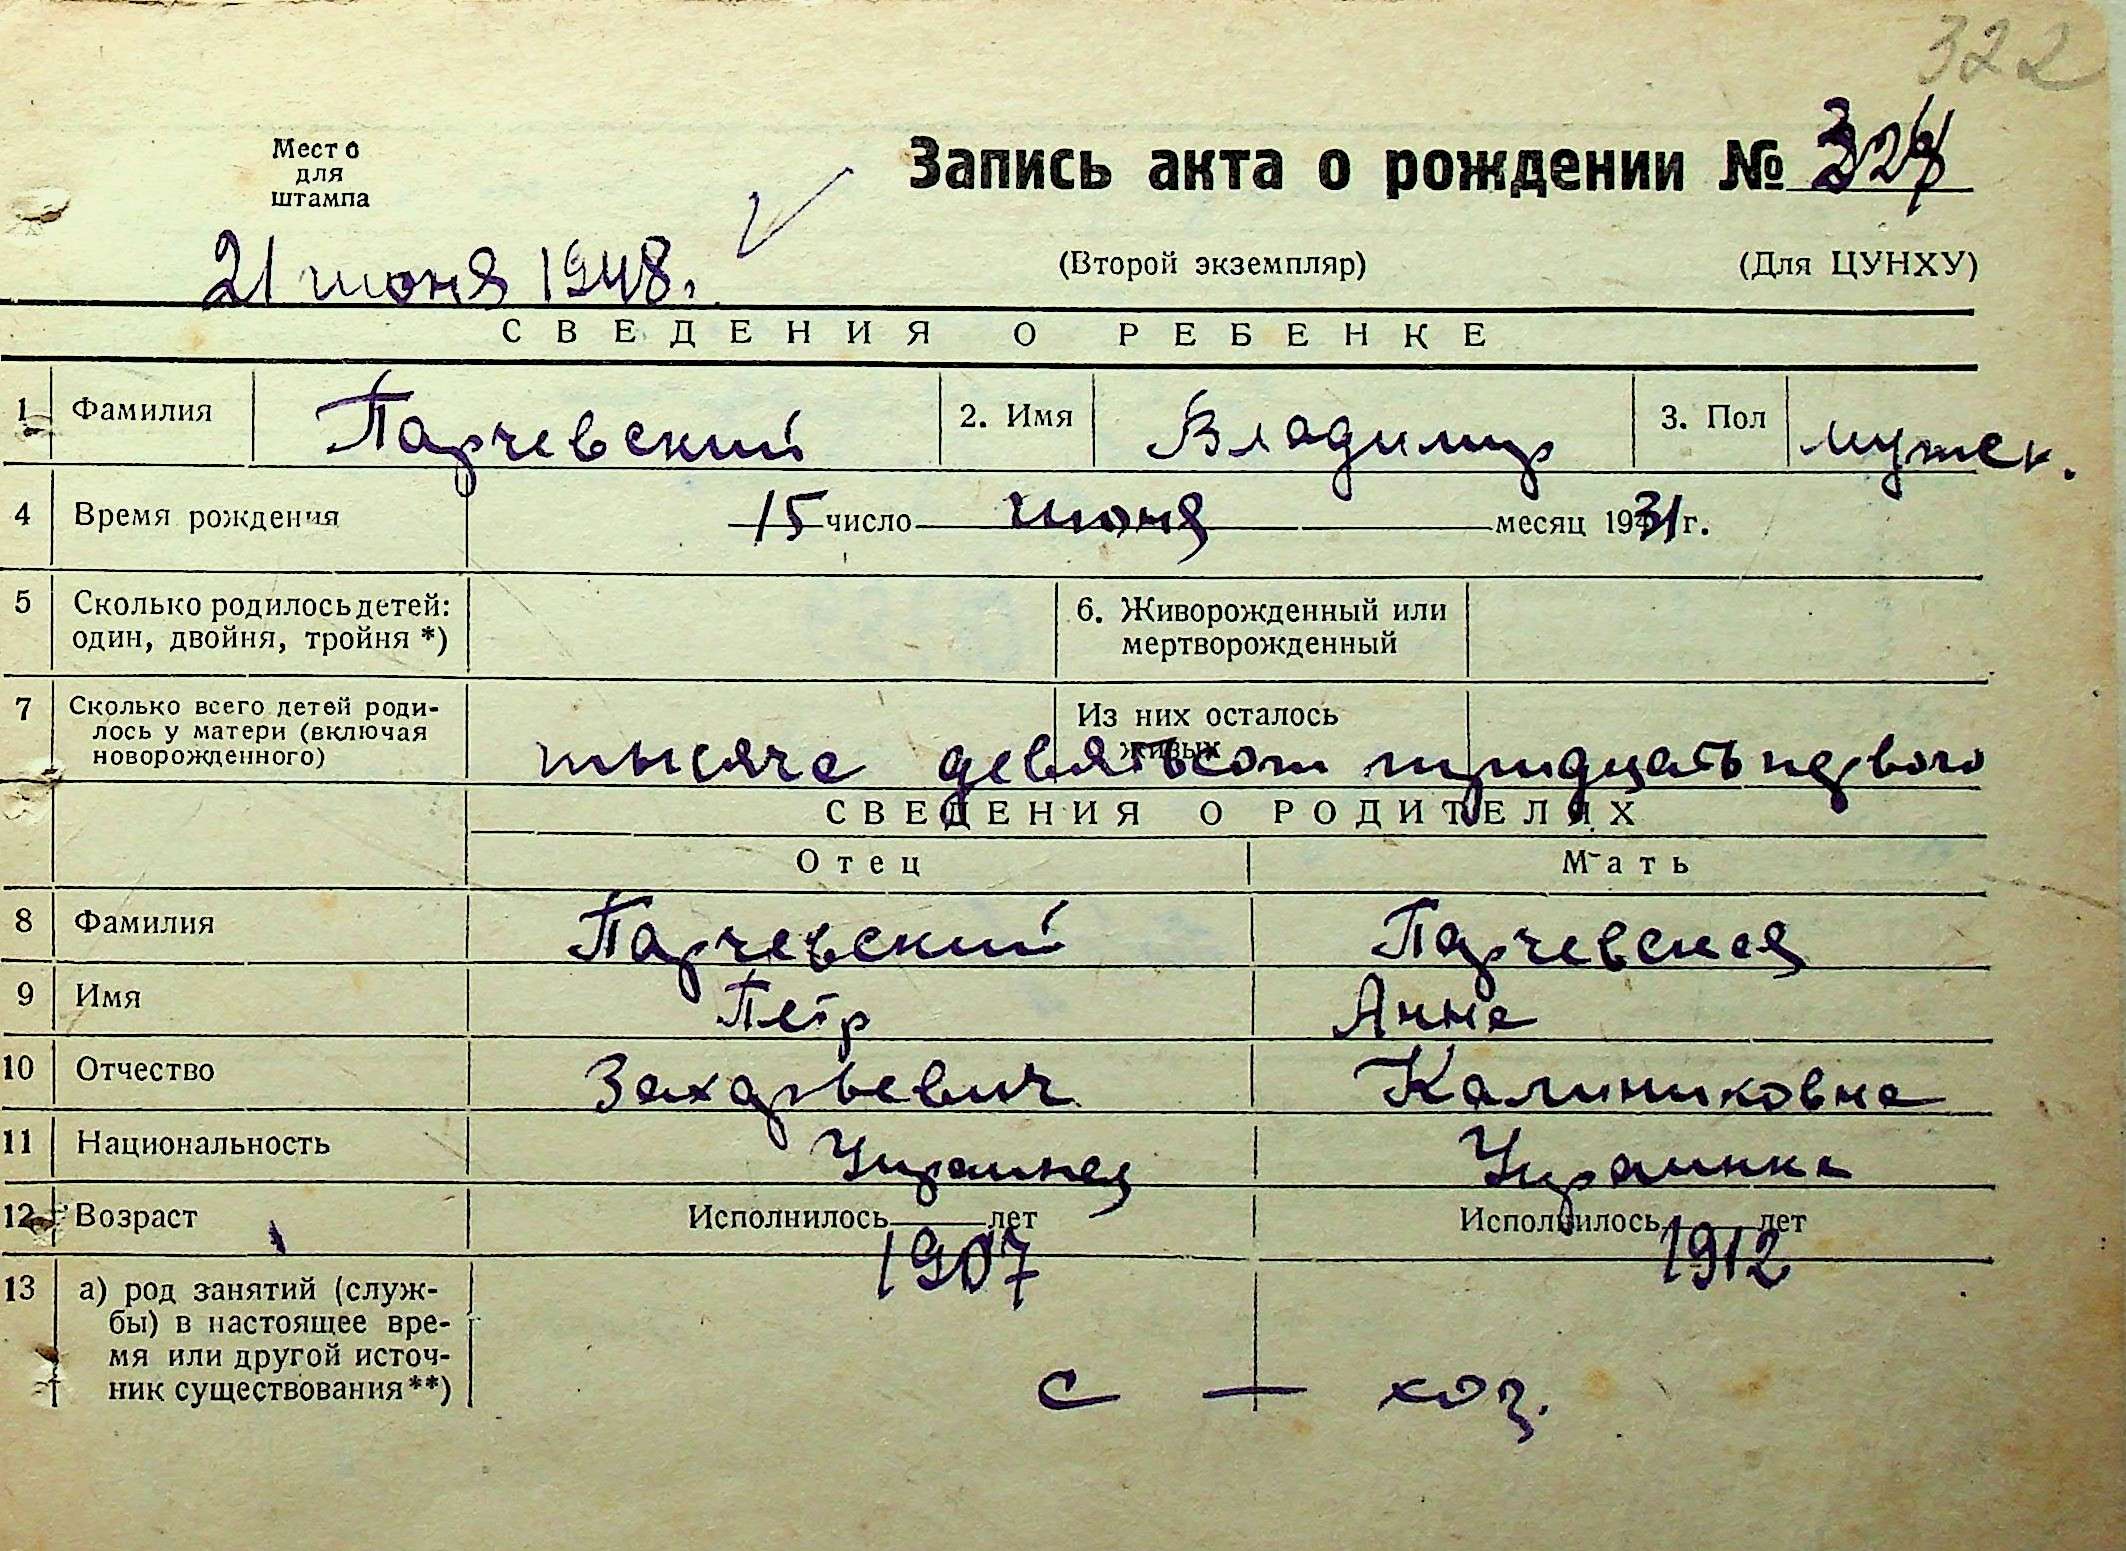 322
Место
для
штампа
Запись акта о рождении №
21 июня 1948 г.
(Второй экземпляр) (Для ЦУНХУ)
СВЕДЕНИЯ О РЕБЕНКЕ
1 Фамилия Парчевский 2. Имя Владимир 3. Пол мужск.
4 Время рождения 15 число июня месяц 1931 г.
5 Сколько родилось детей: 6. Живорожденный или
один, двойня, тройня *) мертворожденный
7 Сколько всего детей роди- Из них осталось
лось у матери (включая живых
новорожденного) тысяча девятьсот тридцать первого
СВЕДЕНИЯ О РОДИТЕЛЯХ
Отец Мать
8 Фамилия Парчевский Парчевская
9 Имя Петр Анна
10 Отчество Захарьевич Калиниковна
11 Национальность Украинец Украинка
12 Возраст Исполнилось лет Исполнилось лет
1907 1912
13 а) род занятий (служ-
бы) в настоящее вре-
мя или другой источ-
ник существования**) с — хоз.